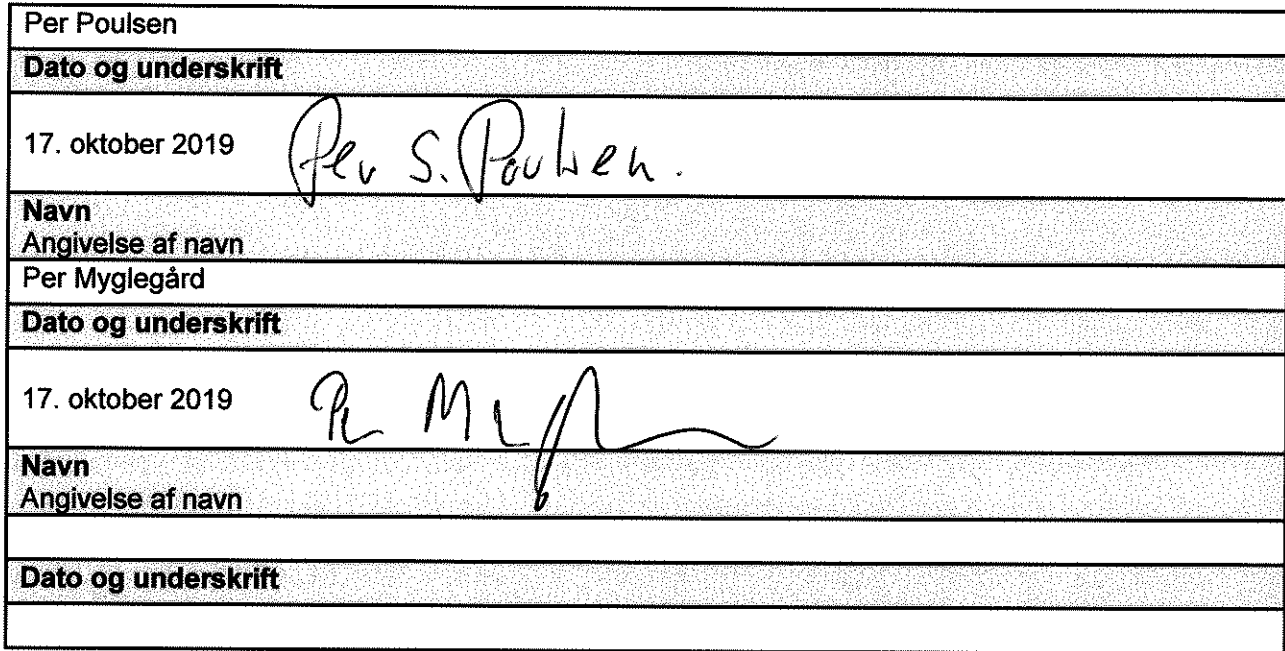 Per Poulsen
Dato og underskrift
17. oktober 2019 Per S. Poulsen.
Navn
Angivelse af navn
Per Myglegård
Dato og underskrift
17. oktober 2019
Navn
Angivelse af navn
Dato og underskrift